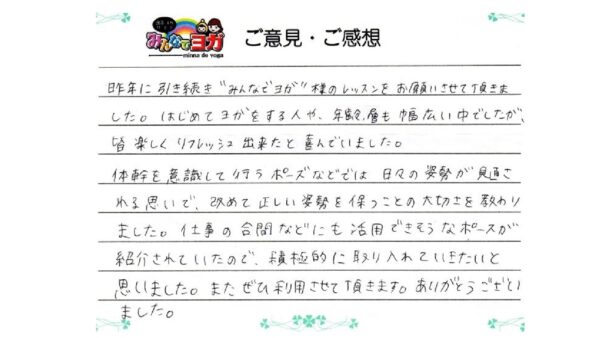 みんなでヨガ
minna de yoga
ご意見・ご感想
昨年に引き続き“みんなでヨガ”様のレッスンをお願いさせて頂きま
した。はじめてヨガをする人や、年齢層も幅広い中でしたが、
皆楽しくリフレッシュ出来たと喜んでいました。
体幹を意識して行うポーズなどでは日々の姿勢が見直さ
れる思いで、改めて正しい姿勢を保つことの大切さを教わり
ました。仕事の合間などにも活用できそうなポーズが
紹介されていたので、積極的に取り入れていきたいと
思いました。またぜひ利用させて頂きます。ありがとうござい
ました。